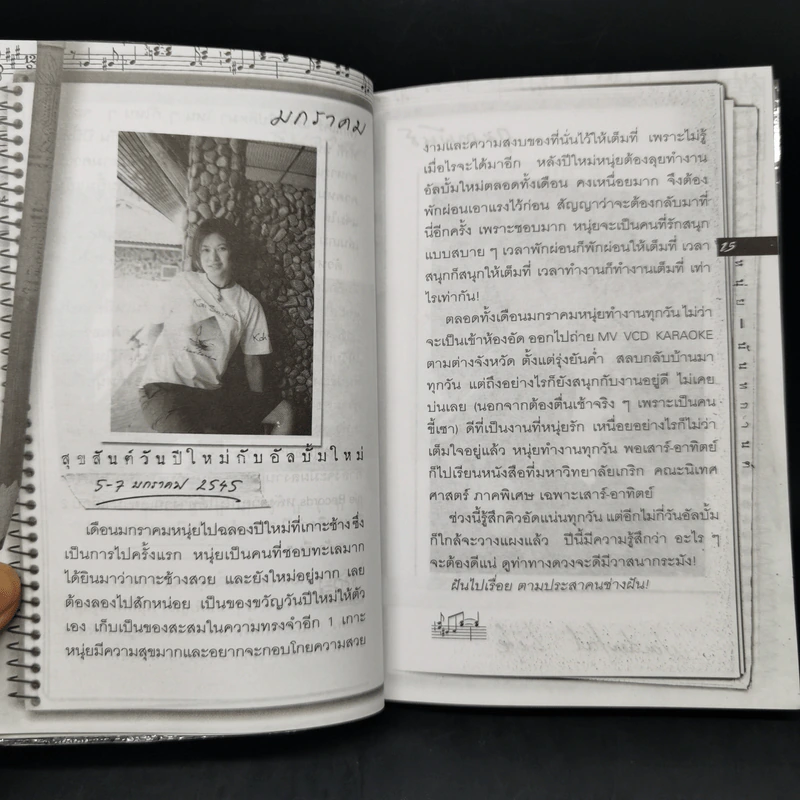 มกราคม
สุขสันต์วันปีใหม่กับอัลบั้มใหม่
5-7 มกราคม 2545
เดือนมกราคมหนุ่ยไปฉลองปีใหม่ที่เกาะช้าง ซึ่ง
เป็นการไปครั้งแรก หนุ่ยเป็นคนที่ชอบทะเลมาก
ได้ยินมาว่าเกาะช้างสวย และยังใหม่อยู่มาก เลย
ต้องลองไปสักหน่อย เป็นของขวัญวันปีใหม่ให้ตัว
เอง เก็บเป็นของสะสมในความทรงจำอีก 1 เกาะ
หนุ่ยมีความสุขมากและอยากจะกอบโกยความสวย
งามและความสงบของที่นั่นไว้ให้เต็มที่ เพราะไม่รู้
เมื่อไรจะได้มาอีก หลังปีใหม่หนุ่ยต้องลุยทำงาน
อัลบั้มใหม่ตลอดทั้งเดือน คงเหนื่อยมาก จึงต้อง
พักผ่อนเอาแรงไว้ก่อน สัญญาว่าจะต้องกลับมาที่
นี่อีกครั้ง เพราะชอบมาก หนุ่ยจะเป็นคนที่รักสนุก
แบบสบาย ๆ เวลาพักผ่อนก็พักผ่อนให้เต็มที่ เวลา
สนุกก็สนุกให้เต็มที่ เวลาทำงานก็ทำงานเต็มที่ เท่า
ไรเท่ากัน!
ตลอดทั้งเดือนมกราคมหนุ่ยทำงานทุกวัน ไม่ว่า
จะเป็นเข้าห้องอัด ออกไปถ่าย MV VCD KARAOKE
ตามต่างจังหวัด ตั้งแต่รุ่งยันค่ำ สลบกลับบ้านมา
ทุกวัน แต่ถึงอย่างไรก็ยังสนุกกับงานอยู่ดี ไม่เคย
บ่นเลย (นอกจากต้องตื่นเช้าจริง ๆ เพราะเป็นคน
ขี้เซา) ดีที่เป็นงานที่หนุ่ยรัก เหนื่อยอย่างไรก็ไม่ว่า
เต็มใจอยู่แล้ว หนุ่ยทำงานทุกวัน พอเสาร์-อาทิตย์
ก็ไปเรียนหนังสือที่มหาวิทยาลัยเกริก คณะนิเทศ
ศาสตร์ ภาคพิเศษ เฉพาะเสาร์-อาทิตย์
ช่วงนี้รู้สึกคิวอัดแน่นทุกวัน แต่อีกไม่กี่วันอัลบั้ม
ก็ใกล้จะวางแผงแล้ว ปีนี้มีความรู้สึกว่า อะไร ๆ
จะต้องดีแน่ ดูท่าทางดวงจะดีมีวาสนากระมัง!
ฝันไปเรื่อย ตามประสาคนช่างฝัน!
25